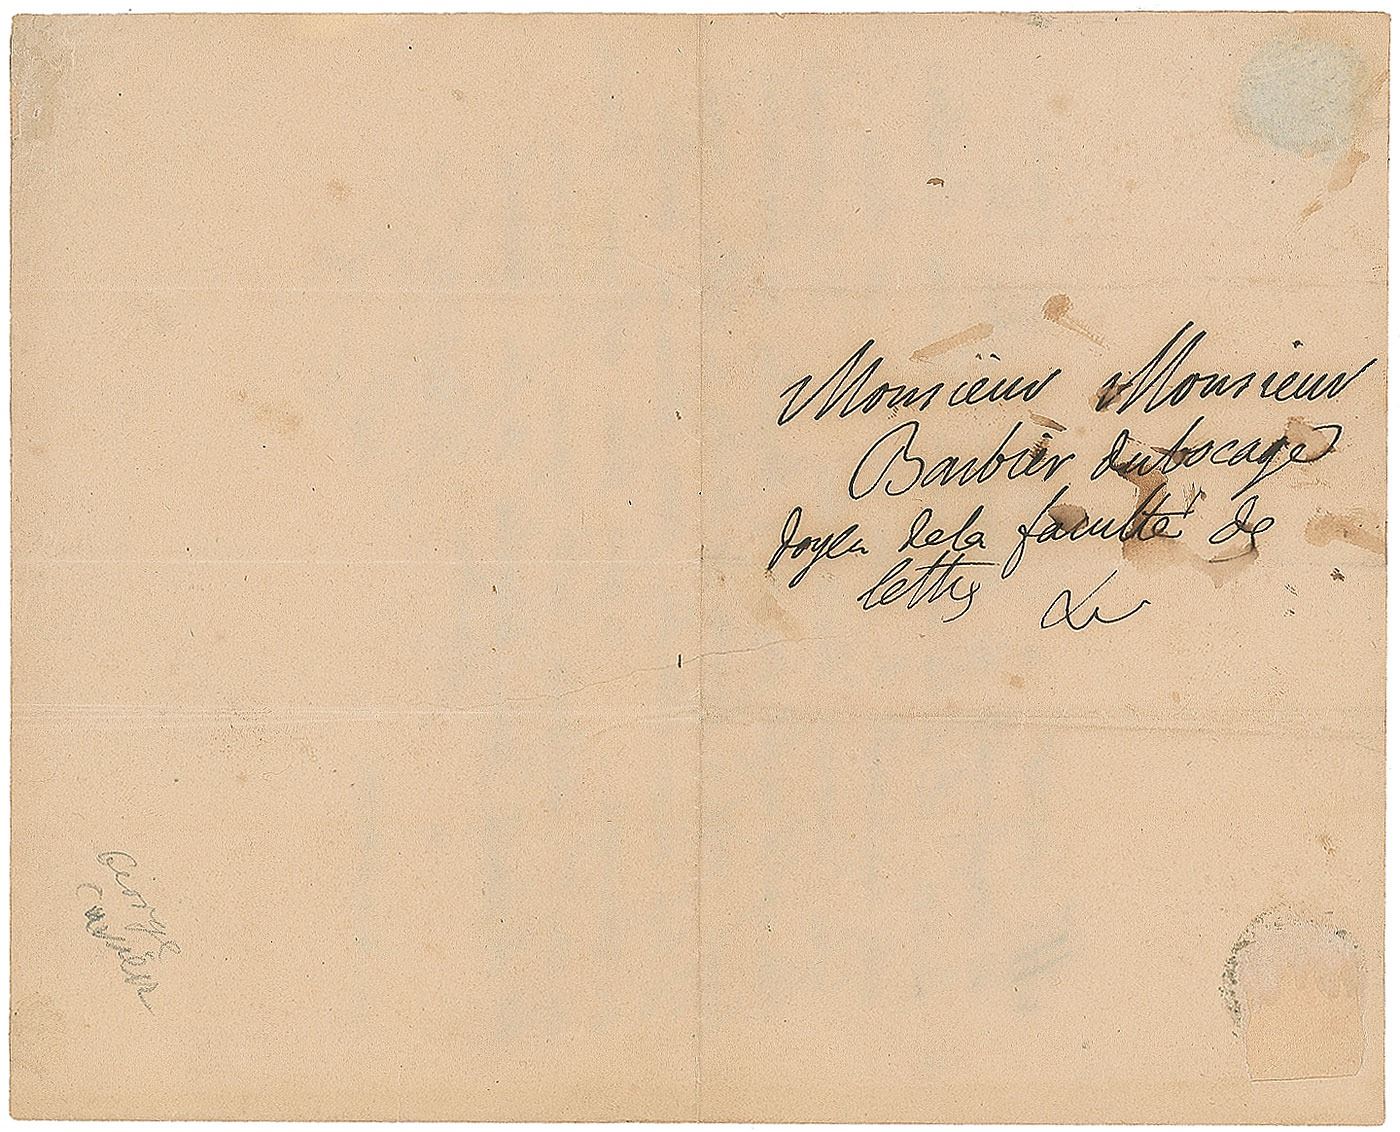 Monsieur Monsieur
Barbier dubocage
doyen dela faculté de
lettres &c
George
Cuvier